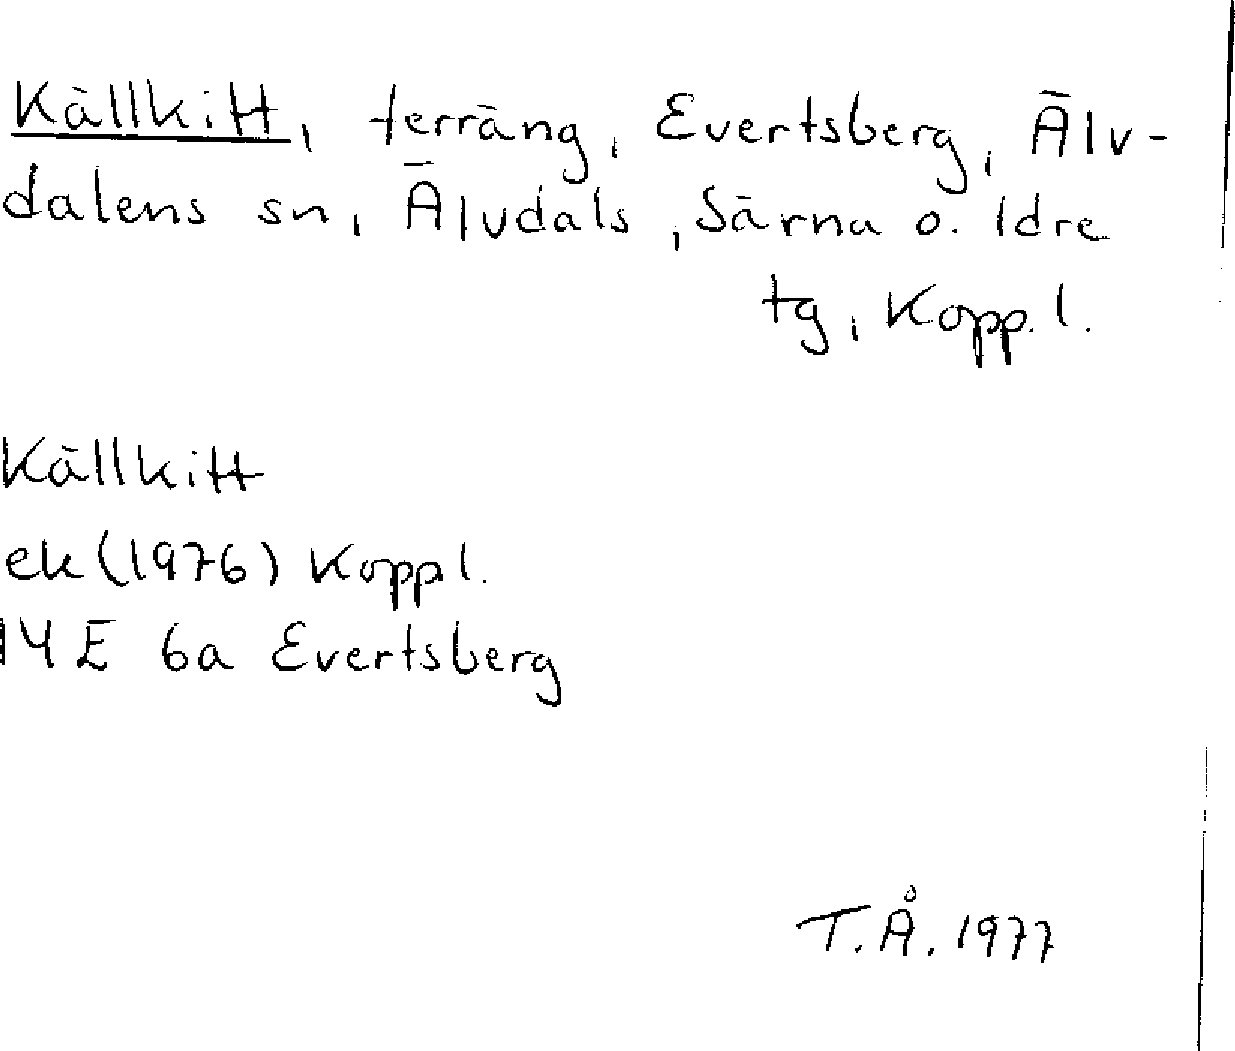 Källkitt, terräng, Evertsberg, Älv-
dalens sn, Älvdals, Särna o. Idre
tg, Kopp. l.
Källkitt
ek (1976) Kopp l.
14 E 6a Evertsberg
T. Å. 1977